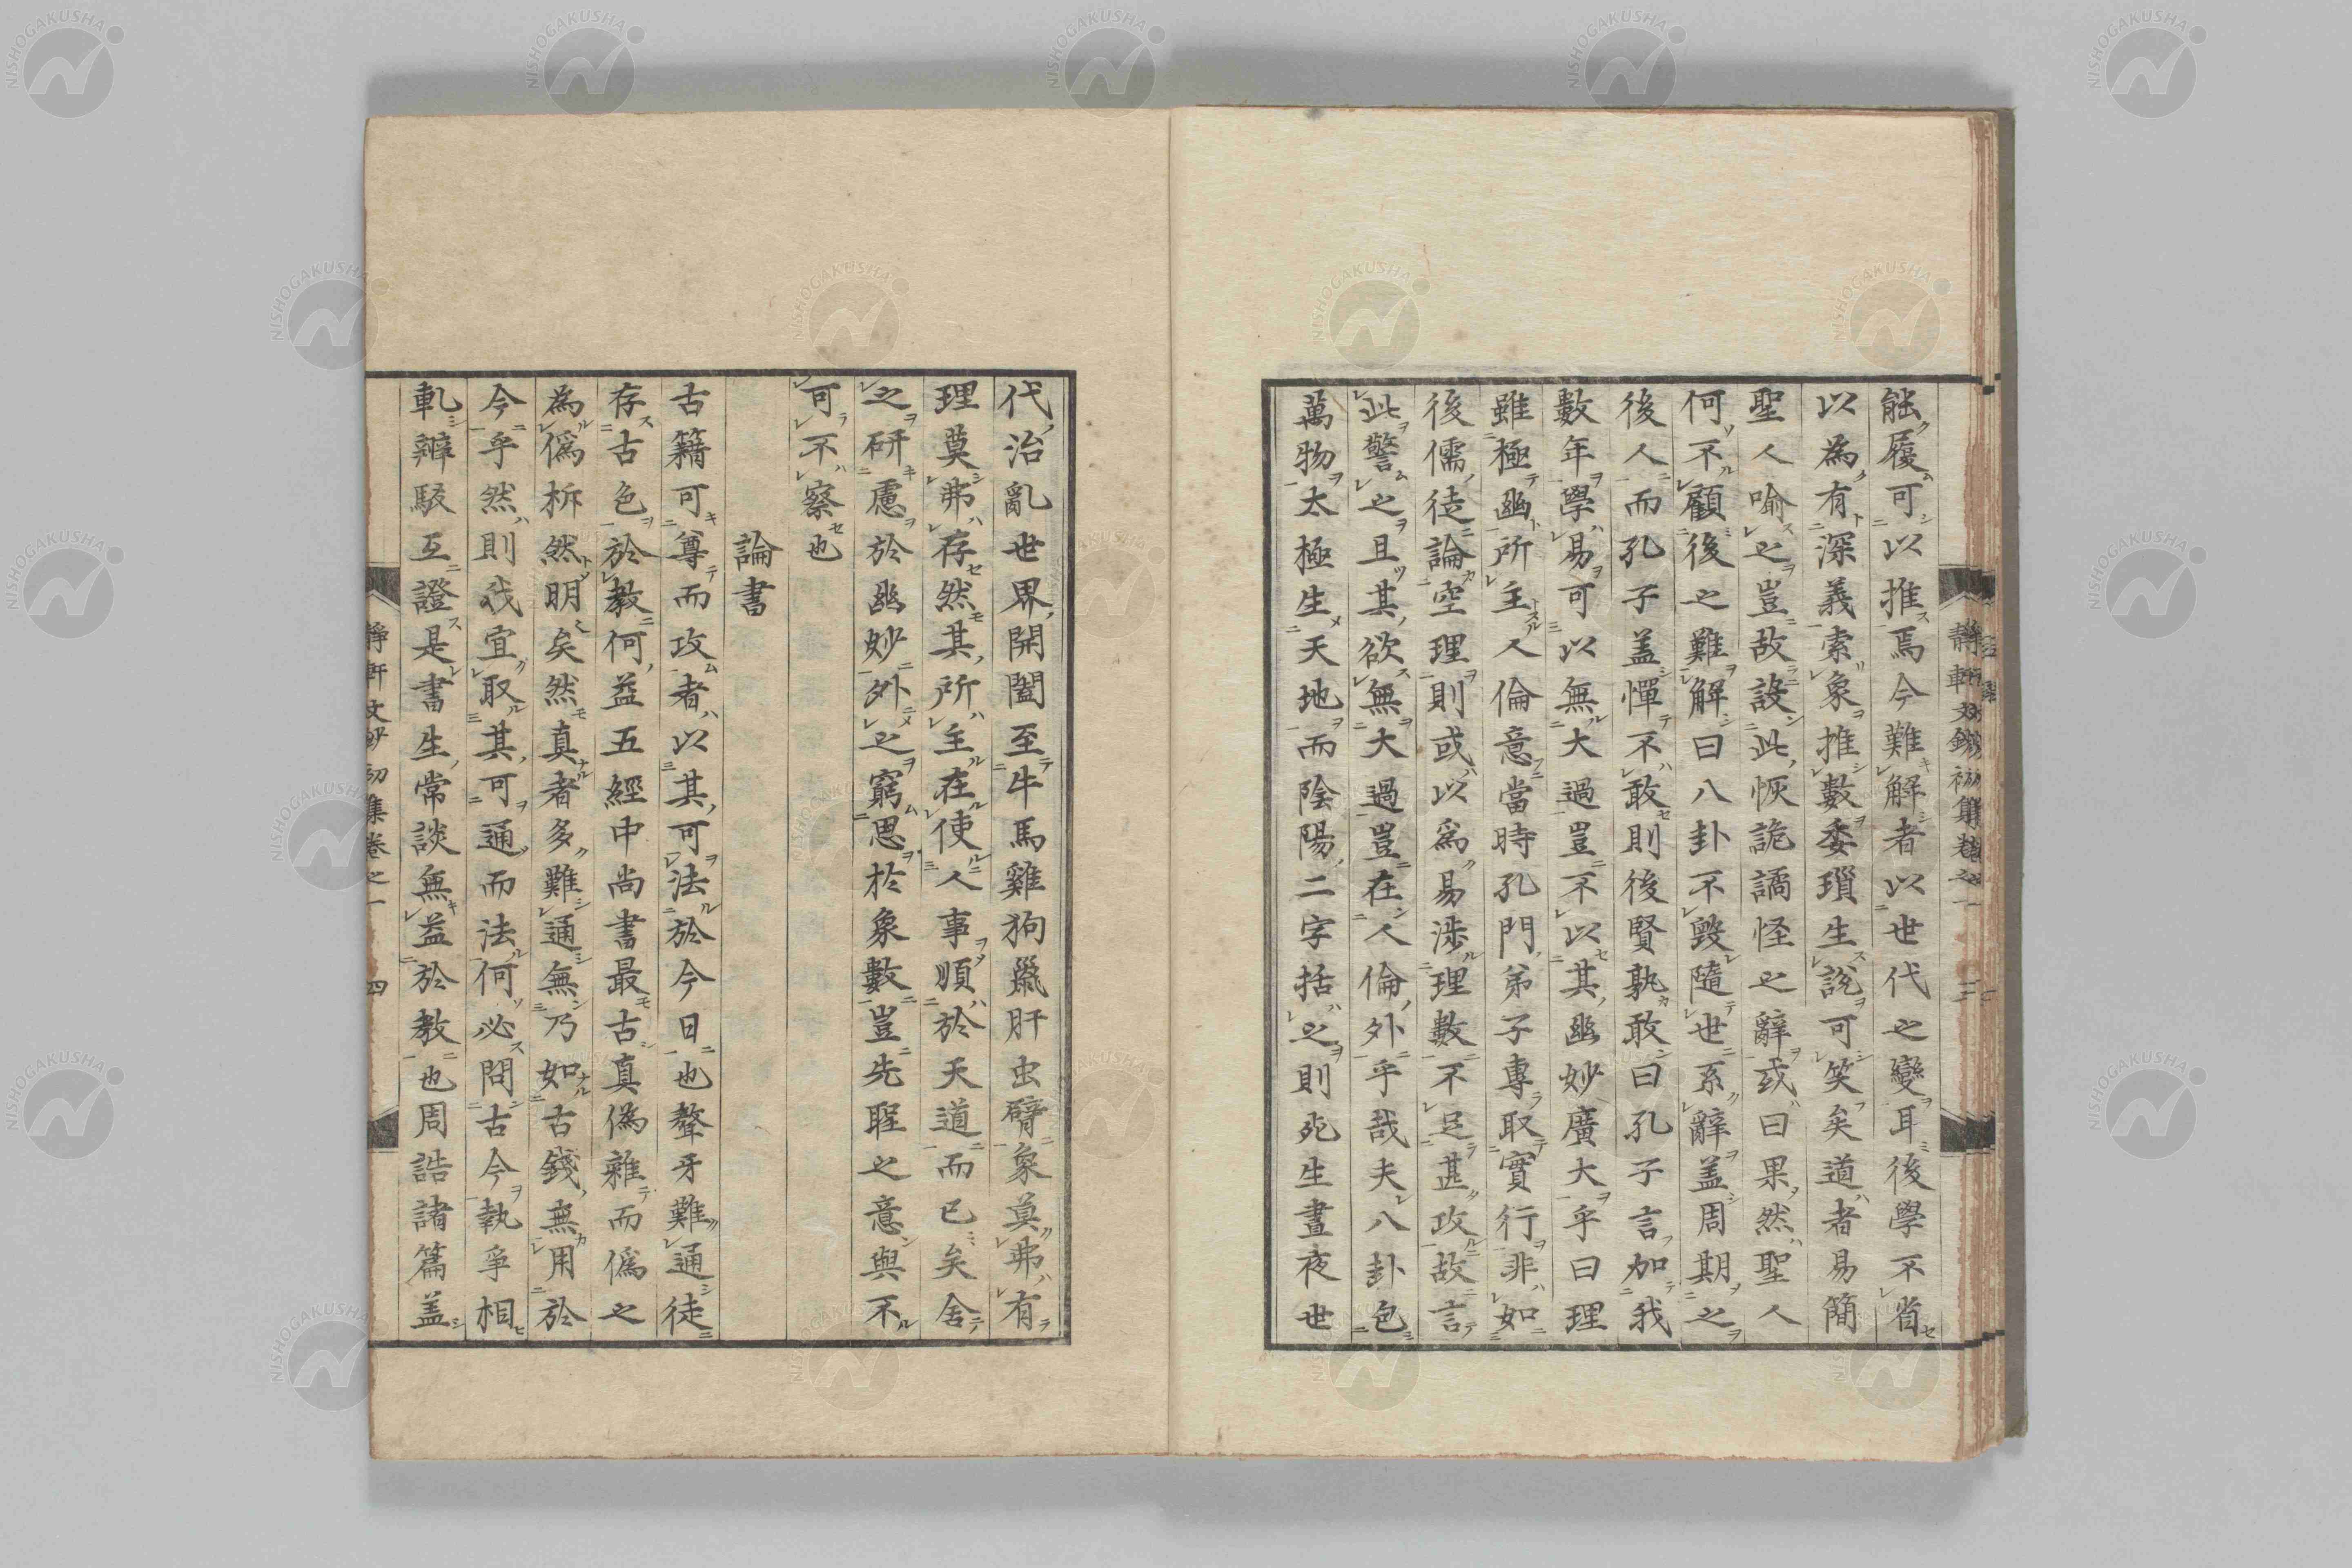 能履可以推焉今難解者以世代之變耳後學不省
以為有深義索象推數委瑣生說可笑矣道者易簡
聖人喻之豈故設此恢詭譎怪之辭或曰果然聖人
何不顧後之難解曰八卦不毀隨世系辭盖周期之
後人而孔子盖憚不敢則後賢孰敢曰孔子言加我
數年學易可以無大過豈不以其幽妙廣大乎曰理
雖極幽所主人倫意當時孔門弟子專取實行非如
後儒徒論空理則或以爲易涉理數不足甚攻故言
此警之且其欲無大過豈在人倫外乎哉夫八卦包
萬物太極生天地而陰陽二字括之則死生晝夜世
代治亂世界開闔至牛馬雞狗鼠肝虫臂象莫弗有
理莫弗存然其所主在使人事順於天道而已矣舍
之研慮於幽妙外之窮思於象數豈先聖之意與不
可不察也
論書
古籍可尊而攻者以其可法於今日也聱牙難通徒
存古色於教何益五經中尚書最古真偽雜而僞之
為僞柝然明矣然真者多難通無乃如古錢無用於
今乎然則我宜取其可通而法何必問古今執爭相
軋辧駁互證是書生常談無益於教也周誥諸篇盖
靜軒文鈔初集卷之一 四